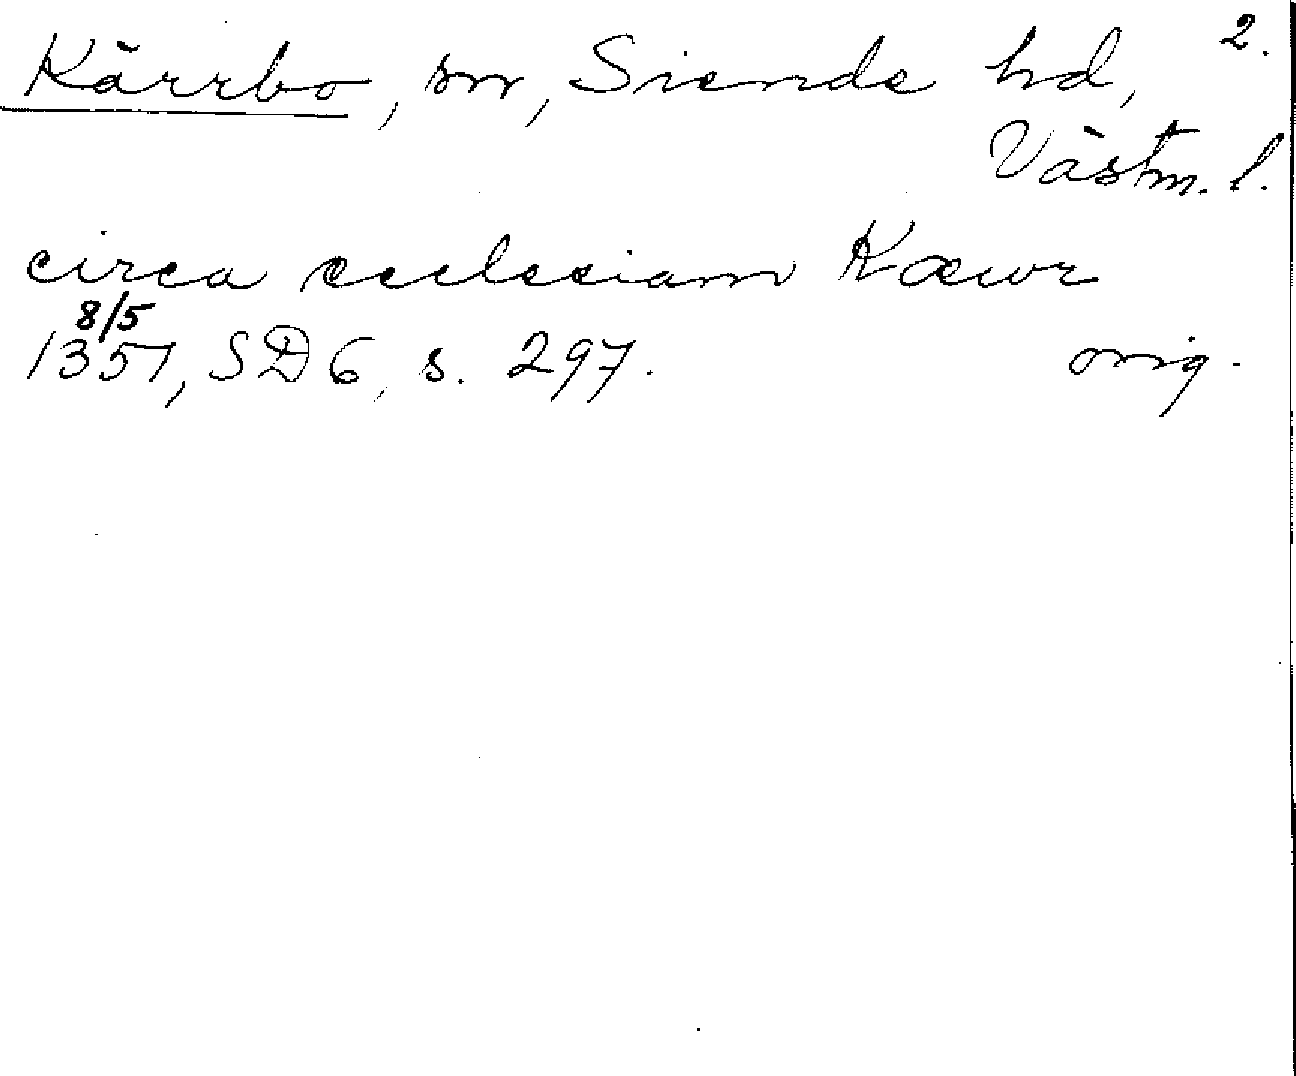 2.
Kärrbo, sn, Siende hd,
Västm. l.
circa ecclesiam Kæwr
8/5
1351, SD 6, s. 297. orig.